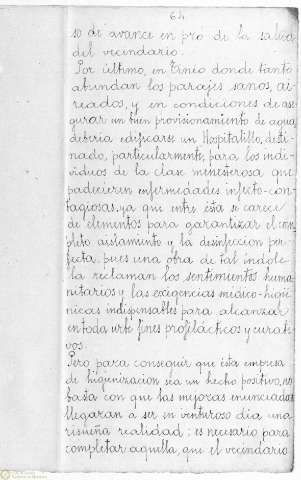 64
so de avance en pró de la salud
del vecindario.
Por último, en Ernio donde tanto
abundan los parajes sanos, ai-
reados, y en condiciones de ase
gurar un bien provisionamiento de agua,
debería edificarse un Hospitalillo, desti-
nado, particularmente, para los indi-
viduos de la clase menesterosa que
padecieren enfermedades infecto-con-
tagiosas, ya que entre ésta se carece
de elementos para garantizar el com
pleto aislamiento y la desinfección per-
fecta, pues una obra de tal índole
la reclaman los sentimientos huma
nitarios y las exigencias médico-higié
nicas indispensables para alcanzar
en toda urbe fines profilácticos y curati
vos.
Pero para conseguir que ésta empresa
de higienización sea un hecho positivo, no
basta con que las mejoras enunciadas
llegaran á ser en venturoso día una
risueña realidad: es necesario para
completar aquella, que el vecindario